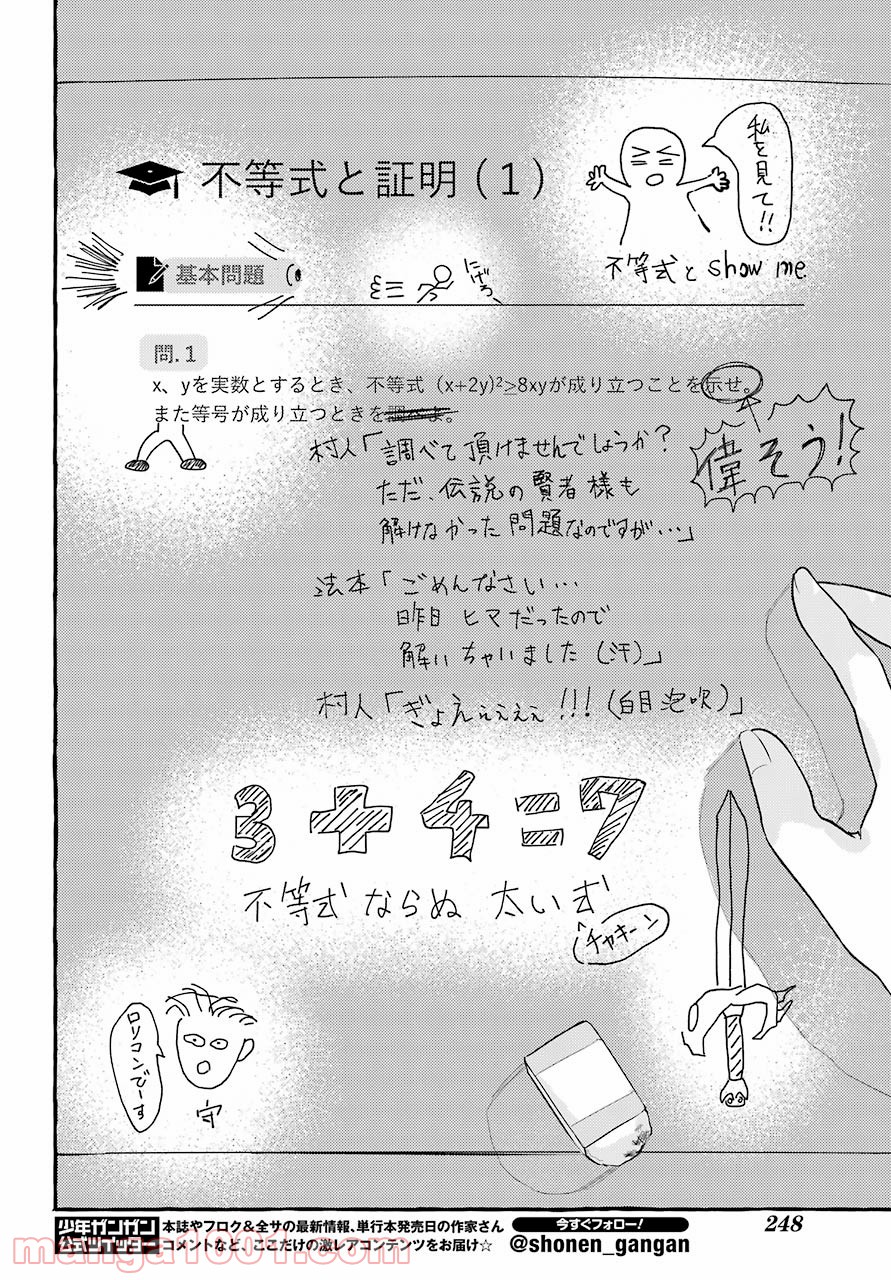 不等式と証明(1)
私を見て!!
不等式と show me
基本問題
にげろ
問.1
x、yを実数とするとき、不等式 (x+2y)²≥8xyが成り立つことを示せ。
また等号が成り立つときを調べよ。
偉そう!
村人「調べて頂けませんでしょうか?
ただ、伝説の賢者様も
解けなかった問題なのですが…」
法本「ごめんなさい…
昨日ヒマだったので
解いちゃいました(汗)」
村人「ぎょえぇぇぇぇ!!!(白目泡吹)」
3+4=7
不等式ならぬ 太い式
チャキーン
ロリコンでーす
守
少年ガンガン
公式ツイッター
本誌やフロク&全サの最新情報、単行本発売日の作家さん
コメントなど、ここだけの激レアコンテンツをお届け☆
今すぐフォロー!
@shonen_gangan
248
manga1001.com